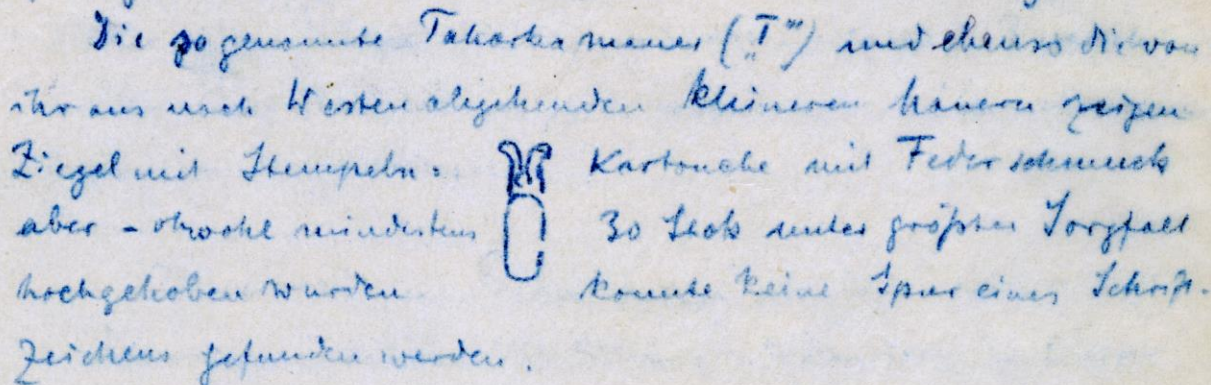 Die sogenannte Taharkamauer („T“) und ebenso die von
ihr aus nach Westen abgehenden kleineren Mauern zeigen
Ziegel mit Stempeln: Kartouche mit Federschmuck
aber - obwohl mindestens 30 Stck unter größter Sorgfalt
hochgehoben wurden konnte keine Spur eines Schrift-
zeichens gefunden werden.